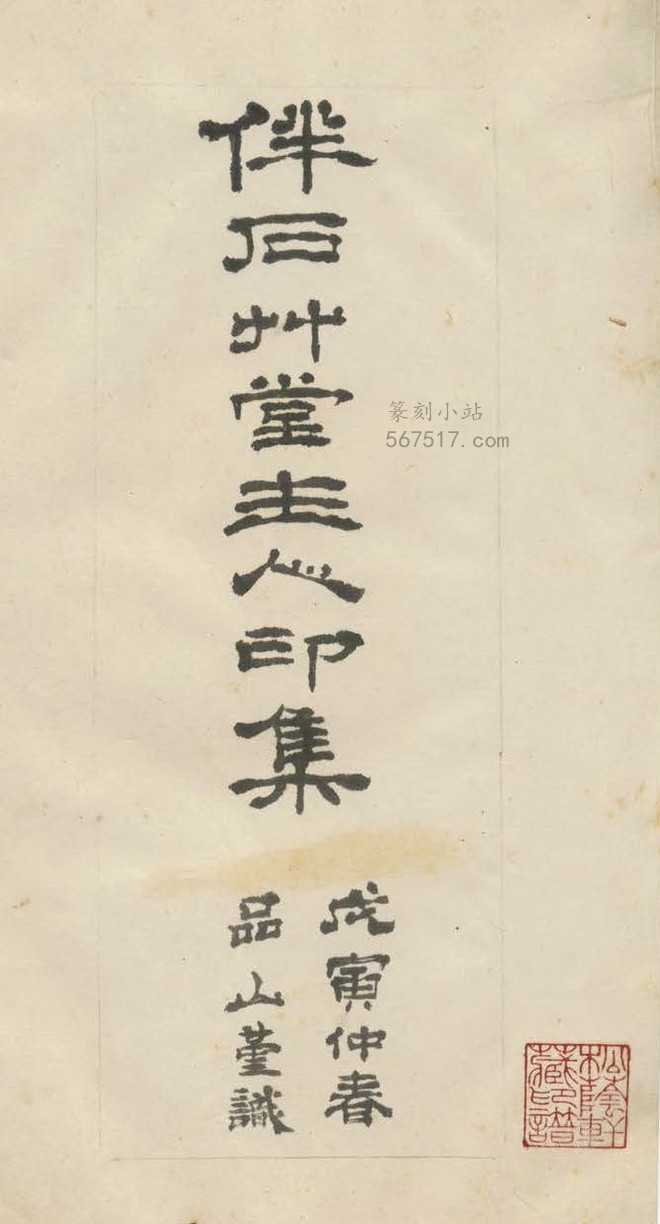 伴石艸堂主人印集
戊寅仲春
品山堇識
松蔭軒
藏印譜
篆刻小站
567517.com